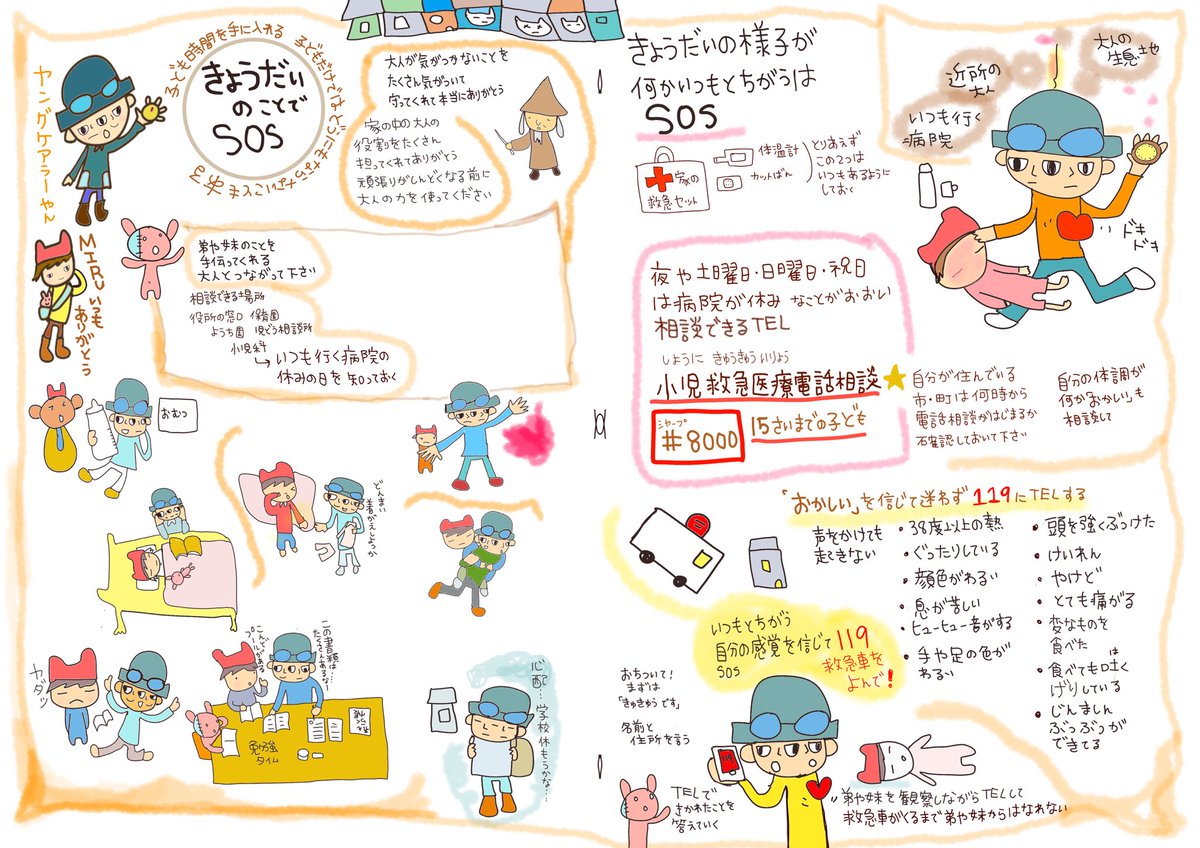 ヤングケアラーやん
子ども時間を手に入れる
子どもだけではどうにもならないこともある
きょうだい
のことで
SOS
大人が気がつかないことを
たくさん気がついて
守ってくれて本当にありがとう
家の中の大人の
役割をたくさん
担ってくれてありがとう
頑張りがしんどくなる前に
大人の力を使ってください
MIRU いつも
ありがとう
弟や妹のことを
手伝ってくれる
大人とつながって下さい
相談できる場所
役所の窓口 保育園
ようち園 児どう相談所
小児科
↳いつも行く病院の
休みの日を知っておく
おむつ
どんまい
着がえしようか
ヤダッ
こんどプールがある
この書類は…
たくさんあるな…
勉強
タイム
心配…学校休もうかな…
きょうだいの様子が
何かいつもとちがうは
SOS
家の
救急セット
体温計
カットばん
とりあえず
この2つは
いつもあるように
しておく
大人の
生息地
近所の
大人
いつも行く
病院
ドキ
ドキ
夜や土曜日・日曜日・祝日
は病院が休みなことがおおい
相談できるTEL
しように きゅうきゅう いりょう
小児救急医療電話相談
シャープ
#8000
15さいまでの子ども
自分が住んでいる
市・町は何時から
電話相談がはじまるか
確認しておいて下さい
自分の体調が
何か「おかしい」も
相談して
「おかしい」を信じて迷わず119にTELする
声をかけても
起きない
・38度以上の熱
・ぐったりしている
・顔色がわるい
・息が苦しい
・ヒューヒュー音がする
・手や足の色が
わるい
・頭を強くぶつけた
・けいれん
・やけど
・とても痛がる
・変なものを
食べた
・食べても吐く
は
・げりしている
・じんましん
ぶつぶつが
できてる
いつもとちがう
自分の感覚を信じて119
SOS
救急車を
よんで!
おちついて!
まずは
「きゅうきゅうです」
名前と
住所を言う
119
TELで
きかれたことを
答えていく
弟や妹を観察しながらTELして
救急車がくるまで弟や妹からはなれない